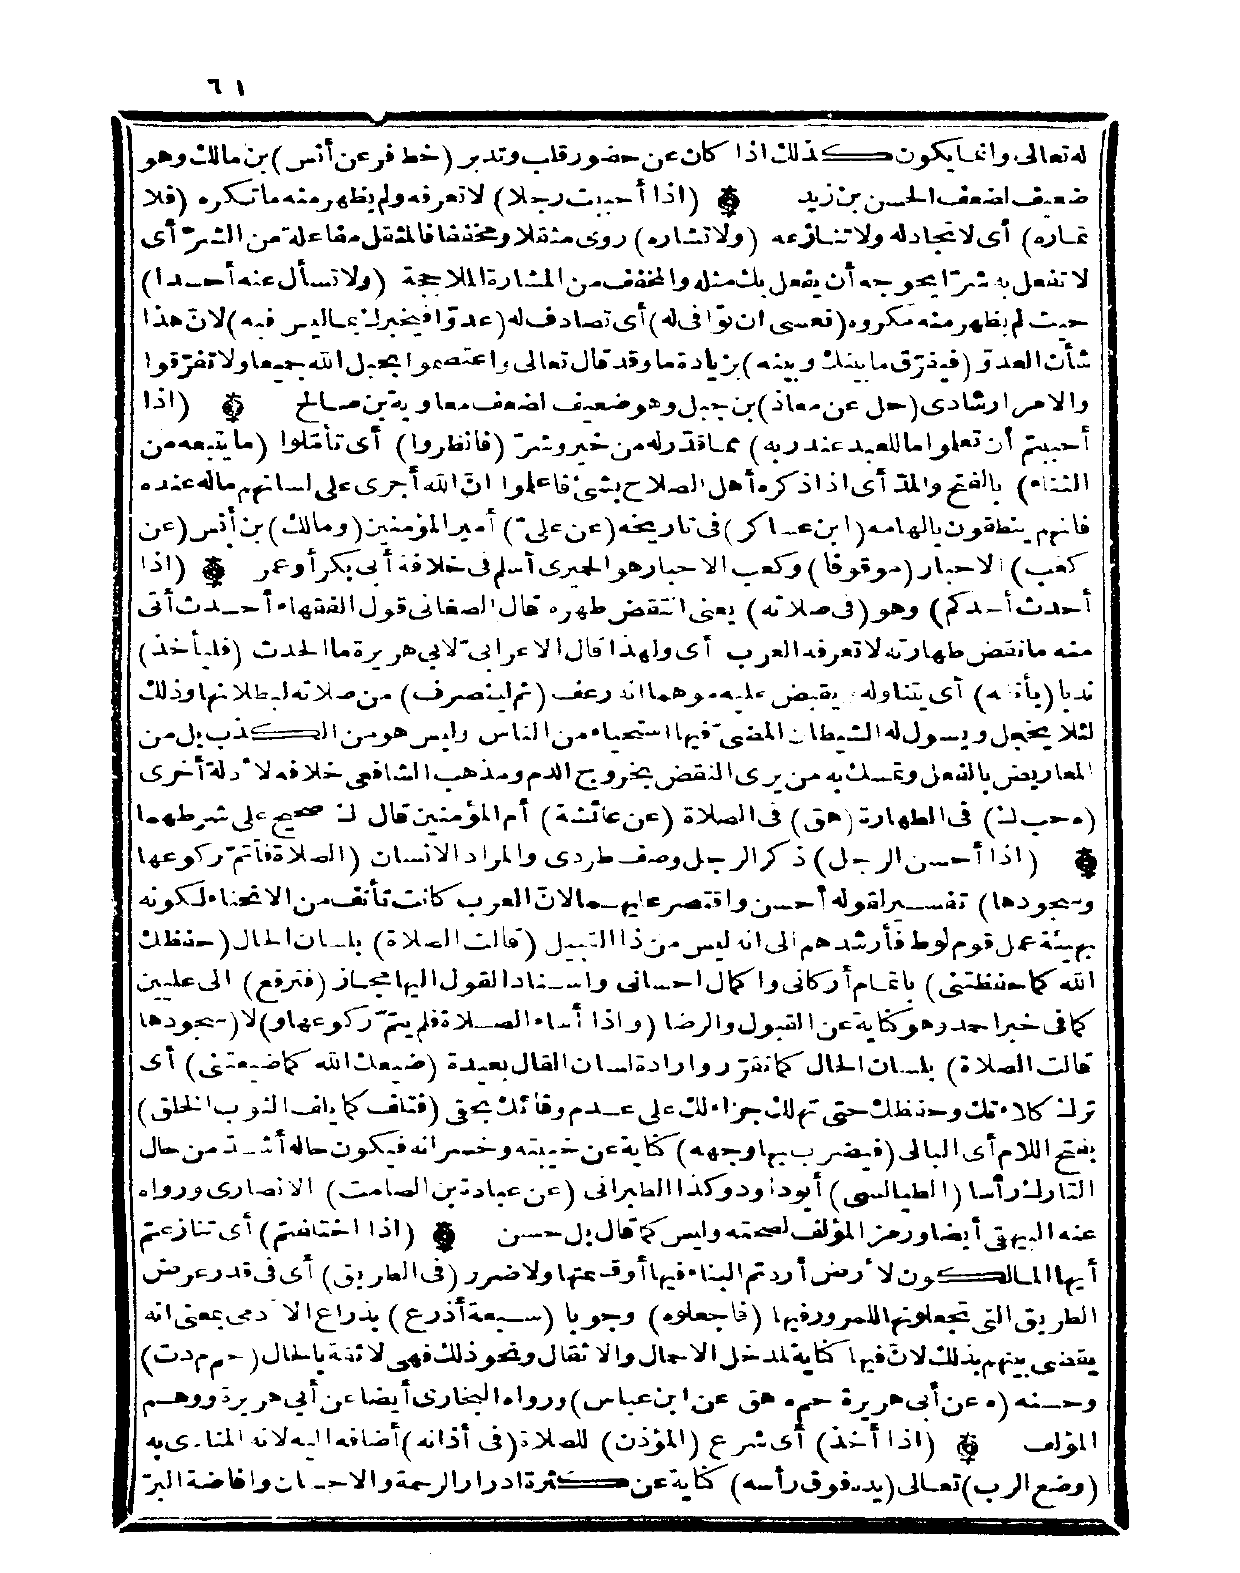 ٦١
له تعالى وانما يكون كذلك اذا كان عن حضور قلب وتدبر (خط فر عن أنس) بن مالك وهو
ضعيف لضعف الحسن بن زيد ۞ (اذا أحببت رجلا) لا تعرفه ولم يظهر منه ما تكره (فلا
تماره) أى لا تجادله ولا تنازعه (ولا تشاره) روى مثقلا ومخففا فالمثقل مفاعلة من الشرّ أى
لا تفعل به شرّا يحوجه أن يفعل بك مثله والمخفف من المشارة الملاججة (ولا تسأل عنه أحدا)
حيث لم يظهر منه مكروه (فعسى ان توافى له) أى تصادف له (عدوّا فيخبرك بما ليس فيه) لان هذا
شأن العدوّ (فيفرّق ما بينك وبينه) بزيادة ما وقد قال تعالى واعتصموا بحبل الله جميعا ولا تفرّقوا
والامر ارشادى (حل عن معاذ) بن جبل وهو ضعيف لضعف معاوية بن صالح ۞ (اذا
أحببتم أن تعلموا ما للعبد عند ربه) مما قدّر له من خير وشرّ (فانظروا) أى تأمّلوا (ما يتبعه من
الثناء) بالفتح والمدّ أى اذا ذكره أهل الصلاح بشئ فاعلموا انّ الله أجرى على لسانهم ماله عنده
فانهم ينطقون بالهامه (ابن عساكر) فى تاريخه (عن علىّ) أمير المؤمنين (ومالك) بن أنس (عن
كعب) الاحبار (موقوفا) وكعب الاحبار هو الحميرى أسلم فى خلافة أبى بكر أو عمر ۞ (اذا
أحدث أحدكم) وهو (فى صلاته) يعنى انتقض طهره قال الصغانى قول الفقهاء أحدث أتى
منه ما نقض طهارته لا تعرفه العرب أى ولهذا قال الاعرابىّ لابى هريرة ما الحدث (فليأخذ)
ندبا (بأنفه) أى يتناوله ويقبض عليه موهما انه رعف (ثم لينصرف) من صلاته لبطلانها وذلك
لئلا يخجل ويسول له الشيطان المضىّ فيها استحياء من الناس وليس هو من الكذب بل من
المعاريض بالفعل وتمسك به من يرى النقض بخروج الدم ومذهب الشافعى خلافه لادلة أخرى
(ه حب ك) فى الطهارة (هق) فى الصلاة (عن عائشة) أم المؤمنين قال ك صحيح على شرطهما
۞ (اذا أحسن الرجل) ذكر الرجل وصف طردى والمراد الانسان (الصلاة فأتمّ ركوعها
وسجودها) تفسير لقوله أحسن واقتصر عليهما لانّ العرب كانت تأنف من الانحناء لكونه
بهيئة عمل قوم لوط فأرشدهم الى انه ليس من ذا القبيل (قالت الصلاة) بلسان الحال (حفظك
الله كما حفظتنى) باتمام أركانى واكمال احسانى واسناد القول اليها مجاز (فترفع) الى عليين
كما فى خبر احمد وهو كناية عن القبول والرضا (واذا أساء الصلاة فلم يتمّ ركوعها و) لا (سجودها
قالت الصلاة) بلسان الحال كما تقرّر وارادة لسان القال بعيدة (ضيعك الله كما ضيعتنى) أى
ترك كلاءتك وحفظك حتى تهلك جزاء لك على عدم وفائك بحقى (فتلف كما يلف الثوب الخلق)
بفتح اللام أى البالى (فيضرب بها وجهه) كناية عن خيبته وخسرانه فيكون حاله أشد من حال
التارك رأسا (الطيالسى) أبو داود وكذا الطبرانى (عن عبادة بن الصامت) الانصارى ورواه
عنه البيهقى أيضا ورمز المؤلف لصحته وليس كما قال بل حسن ۞ (اذا اختلفتم) أى تنازعتم
أيها المالكون لارض أردتم البناء فيها أو قسمتها ولا ضرر (فى الطريق) أى فى قدر عرض
الطريق التى تجعلونها للمرور فيها (فاجعلوه) وجوبا (سبعة أذرع) بذراع الآدمى بمعنى انه
يقضى بينهم بذلك لانّ فيها كفاية لمدخل الاحمال والاثقال ونحو ذلك فهى لائقة بالحال (حم م د ت)
وحسنه (ه عن أبى هريرة حم ه هق عن ابن عباس) ورواه البخارى أيضا عن أبى هريرة ووهم
المؤلف ۞ (اذا أخذ) أى شرع (المؤذن) للصلاة (فى أذانه) أضافه اليه لانه المنادى به
(وضع الرب) تعالى (يده فوق رأسه) كناية عن كثرة ادرار الرحمة والاحسان وافاضة البرّ